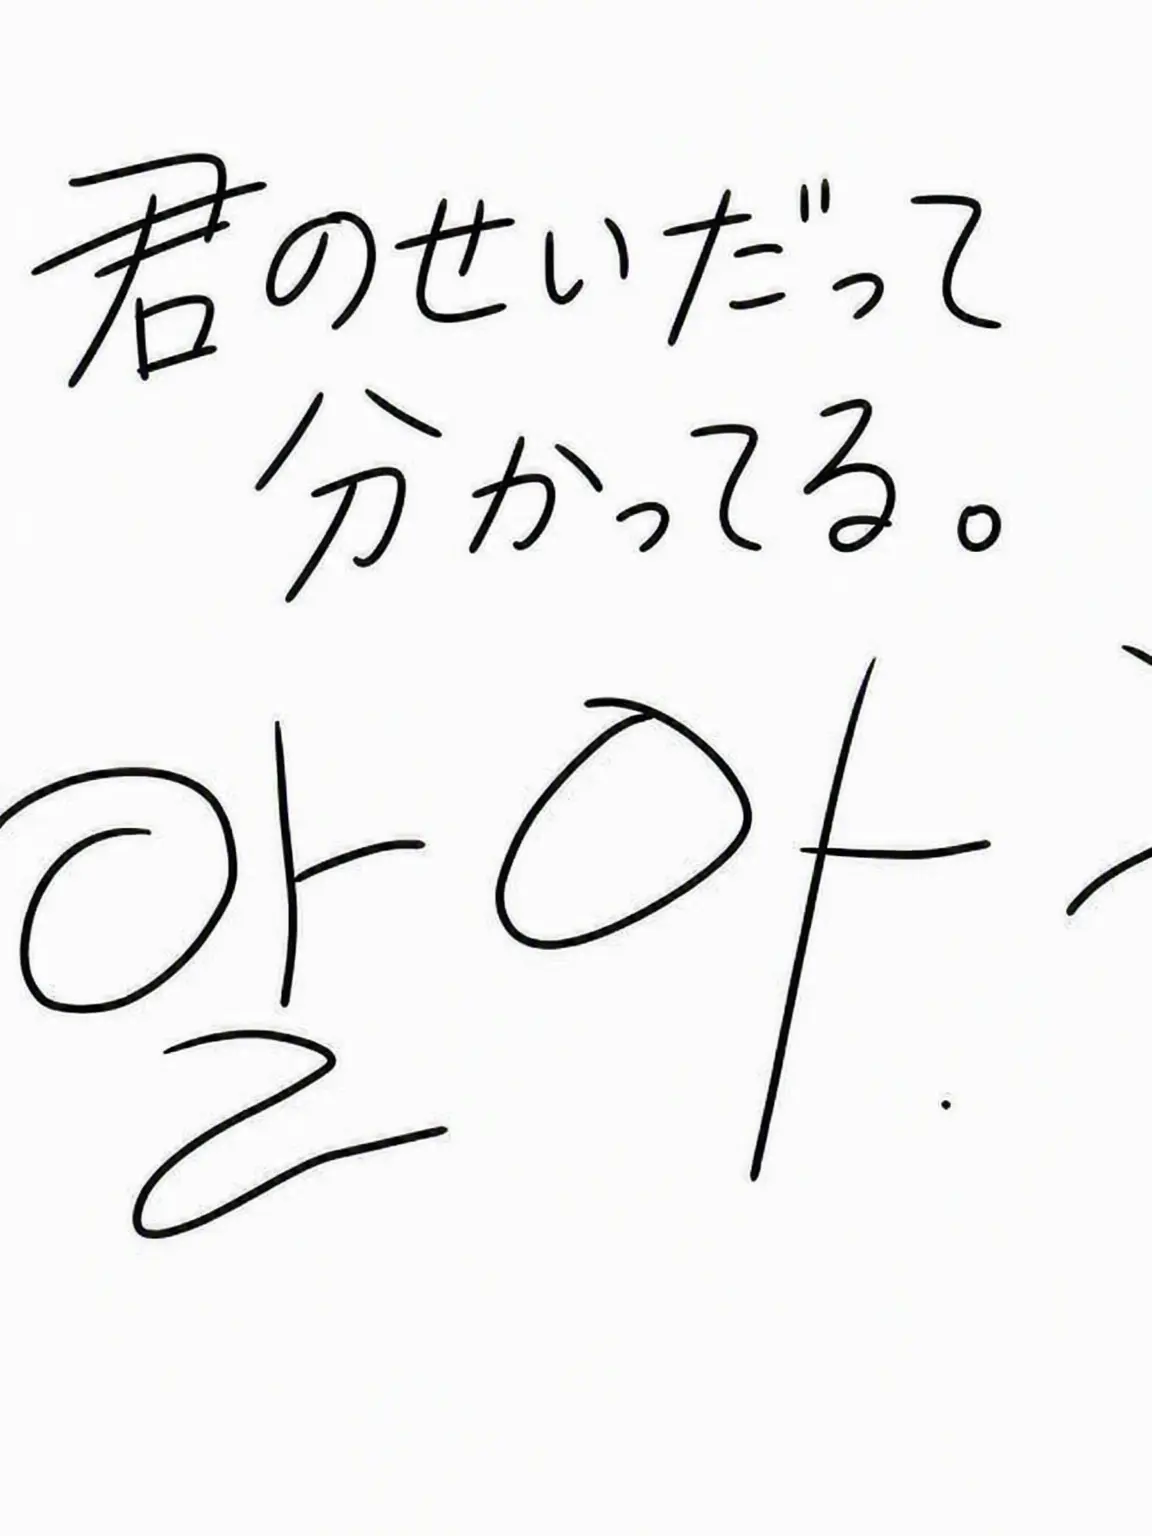 君のせいだって
分かってる。
알아